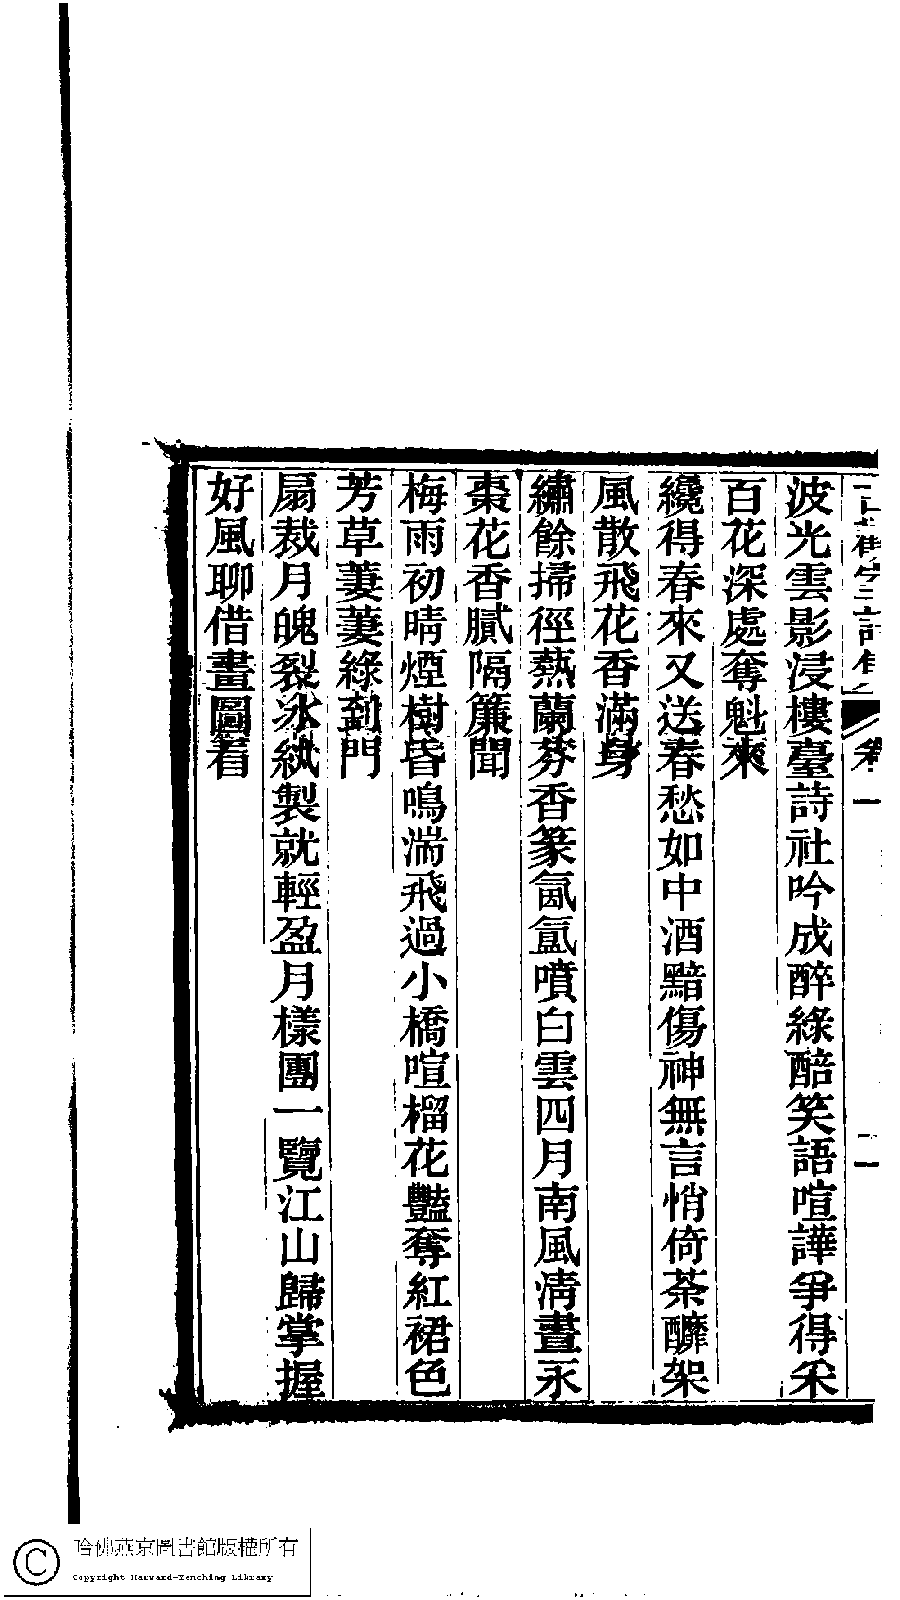 卷一
波光雲影浸樓臺詩社吟成醉綠醅笑語喧譁爭得采
百花深處奪魁來
纔得春來又送春愁如中酒黯傷神無言悄倚荼釄架
風散飛花香滿身
繡餘掃徑熱蘭芬香篆氤氳噴白雲四月南風淸晝永
棗花香膩隔簾聞
梅雨初晴煙樹昏鳴湍飛過小橋喧榴花豔奪紅裙色
芳草萋萋綠到門
扇裁月魄裂冰紈製就輕盈月樣團一覽江山歸掌握
好風聊借畫圖看
哈佛燕京圖書館版權所有
Copyright Harvard-Yenching Library